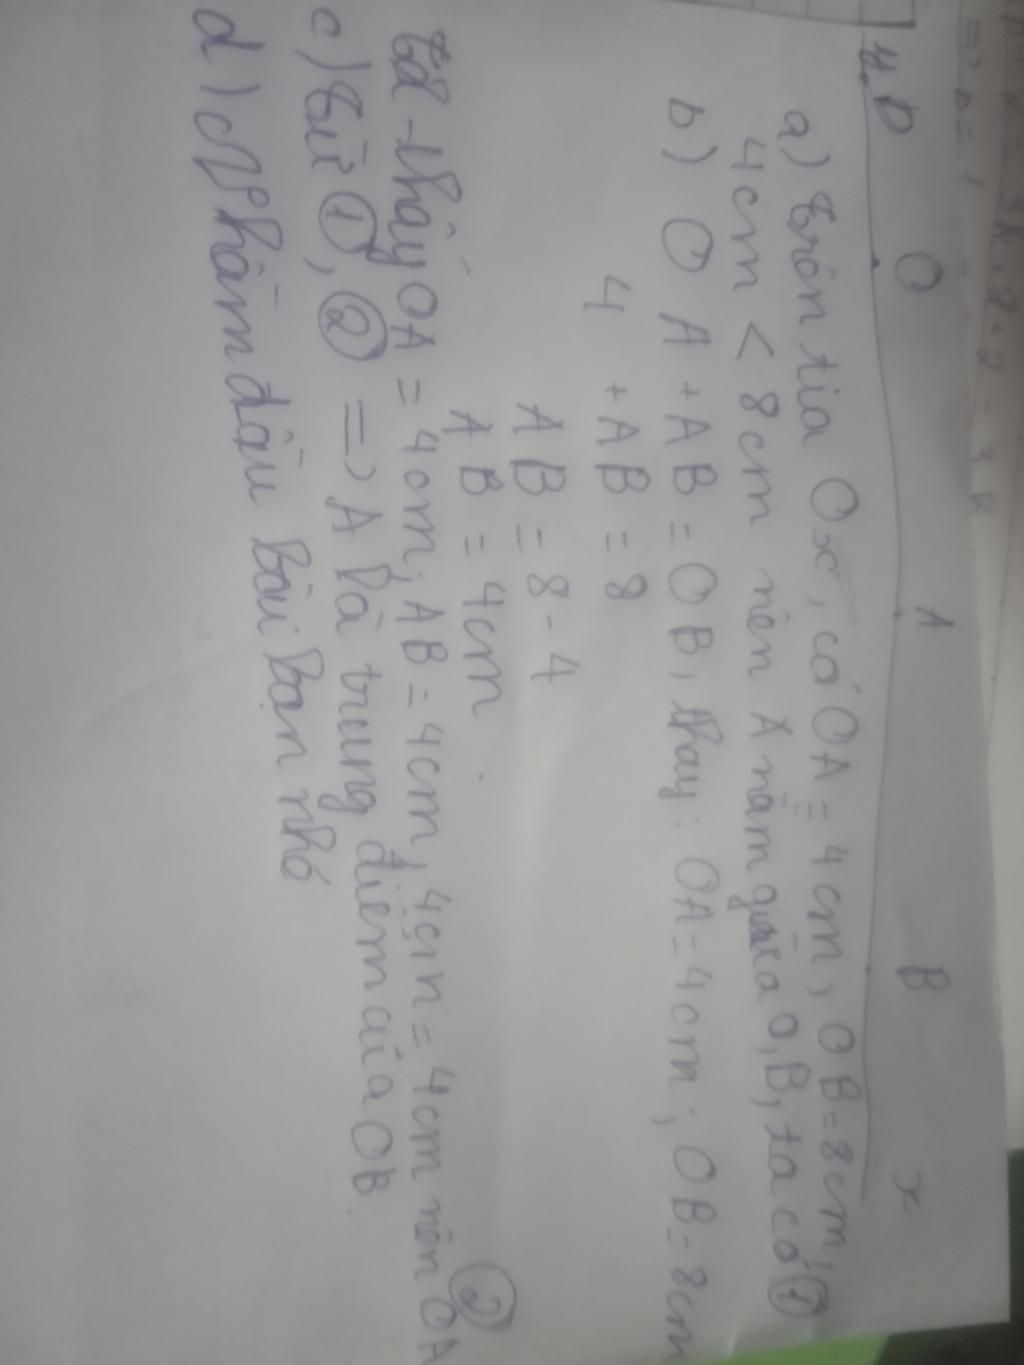 4.
D O A B x
a) Trên tia Ox, có OA = 4cm, OB = 8cm, ①
4cm < 8cm nên A nằm giữa O, B, ta có
b) OA + AB = OB, thay: OA = 4cm; OB = 8cm
4 + AB = 8
AB = 8 - 4
AB = 4cm
Ta thấy OA = 4cm; AB = 4cm, 4cm = 4cm nên OA ②
c) Từ ①, ② => A là trung điểm của OB.
d) Phần đầu bài bạn nhó